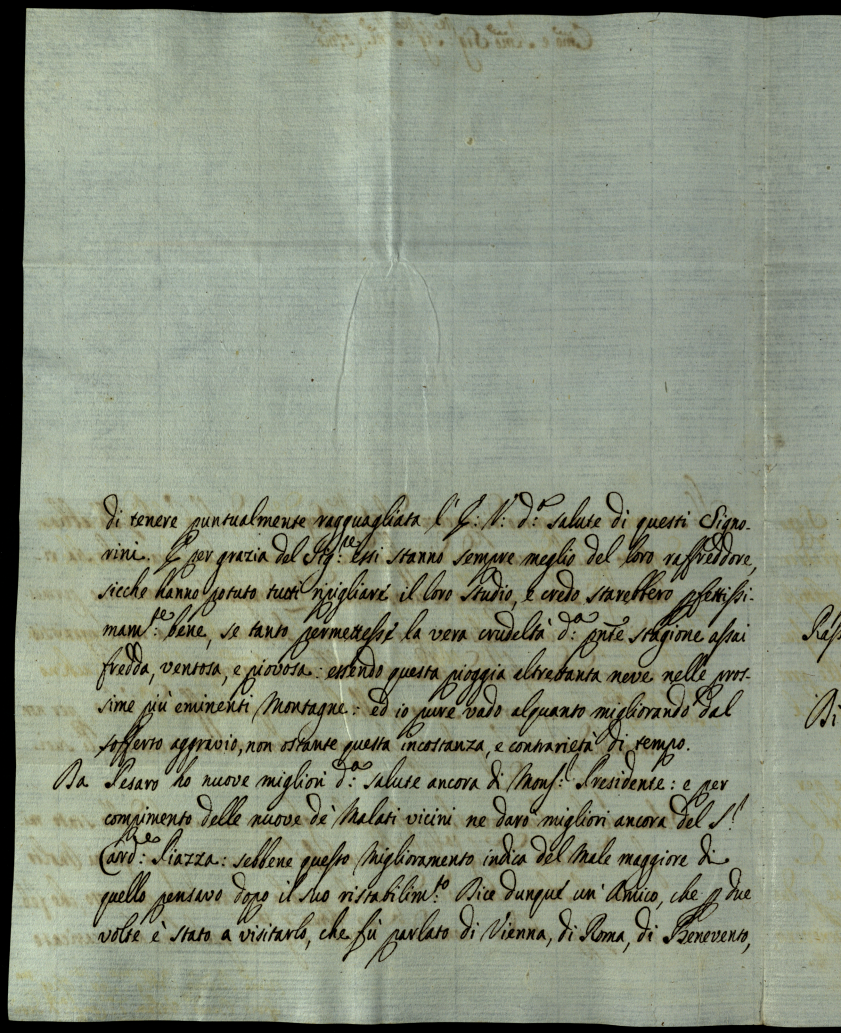 di tenere puntualmente ragguagliata l' E: V: d:ª salute di questi Signo-
rini. E per grazia del Sig:re essi stanno sempre meglio del loro raffreddore,
sicche hanno potuto tutti ripigliare il loro studio, e credo starebbero pfettissi-
mam:te bene, se tanto permettesse la vera crudeltà d:ª pnte stagione assai
fredda, ventosa, e piovosa: essendo questa pioggia altrettanta neve nelle pros-
sime più eminenti Montagne: ed io pure vado alquanto migliorando dal
sofferto aggravio, non ostante questa incostanza, e contrarietà di tempo.
Da Pesaro ho nuove migliori d:ª salute ancora di Mons:r Presidente: e per
compimento delle nuove de' Malati vicini ne darò migliori ancora del S:r
Card:le Piazza: sebbene questo miglioramento indica del Male maggiore di
quello pensavo dopo il suo ristabilim:to Dice dunque un' Amico, che p due
volte è stato a visitarlo, che fù parlato di Vienna, di Roma, di Benevento,